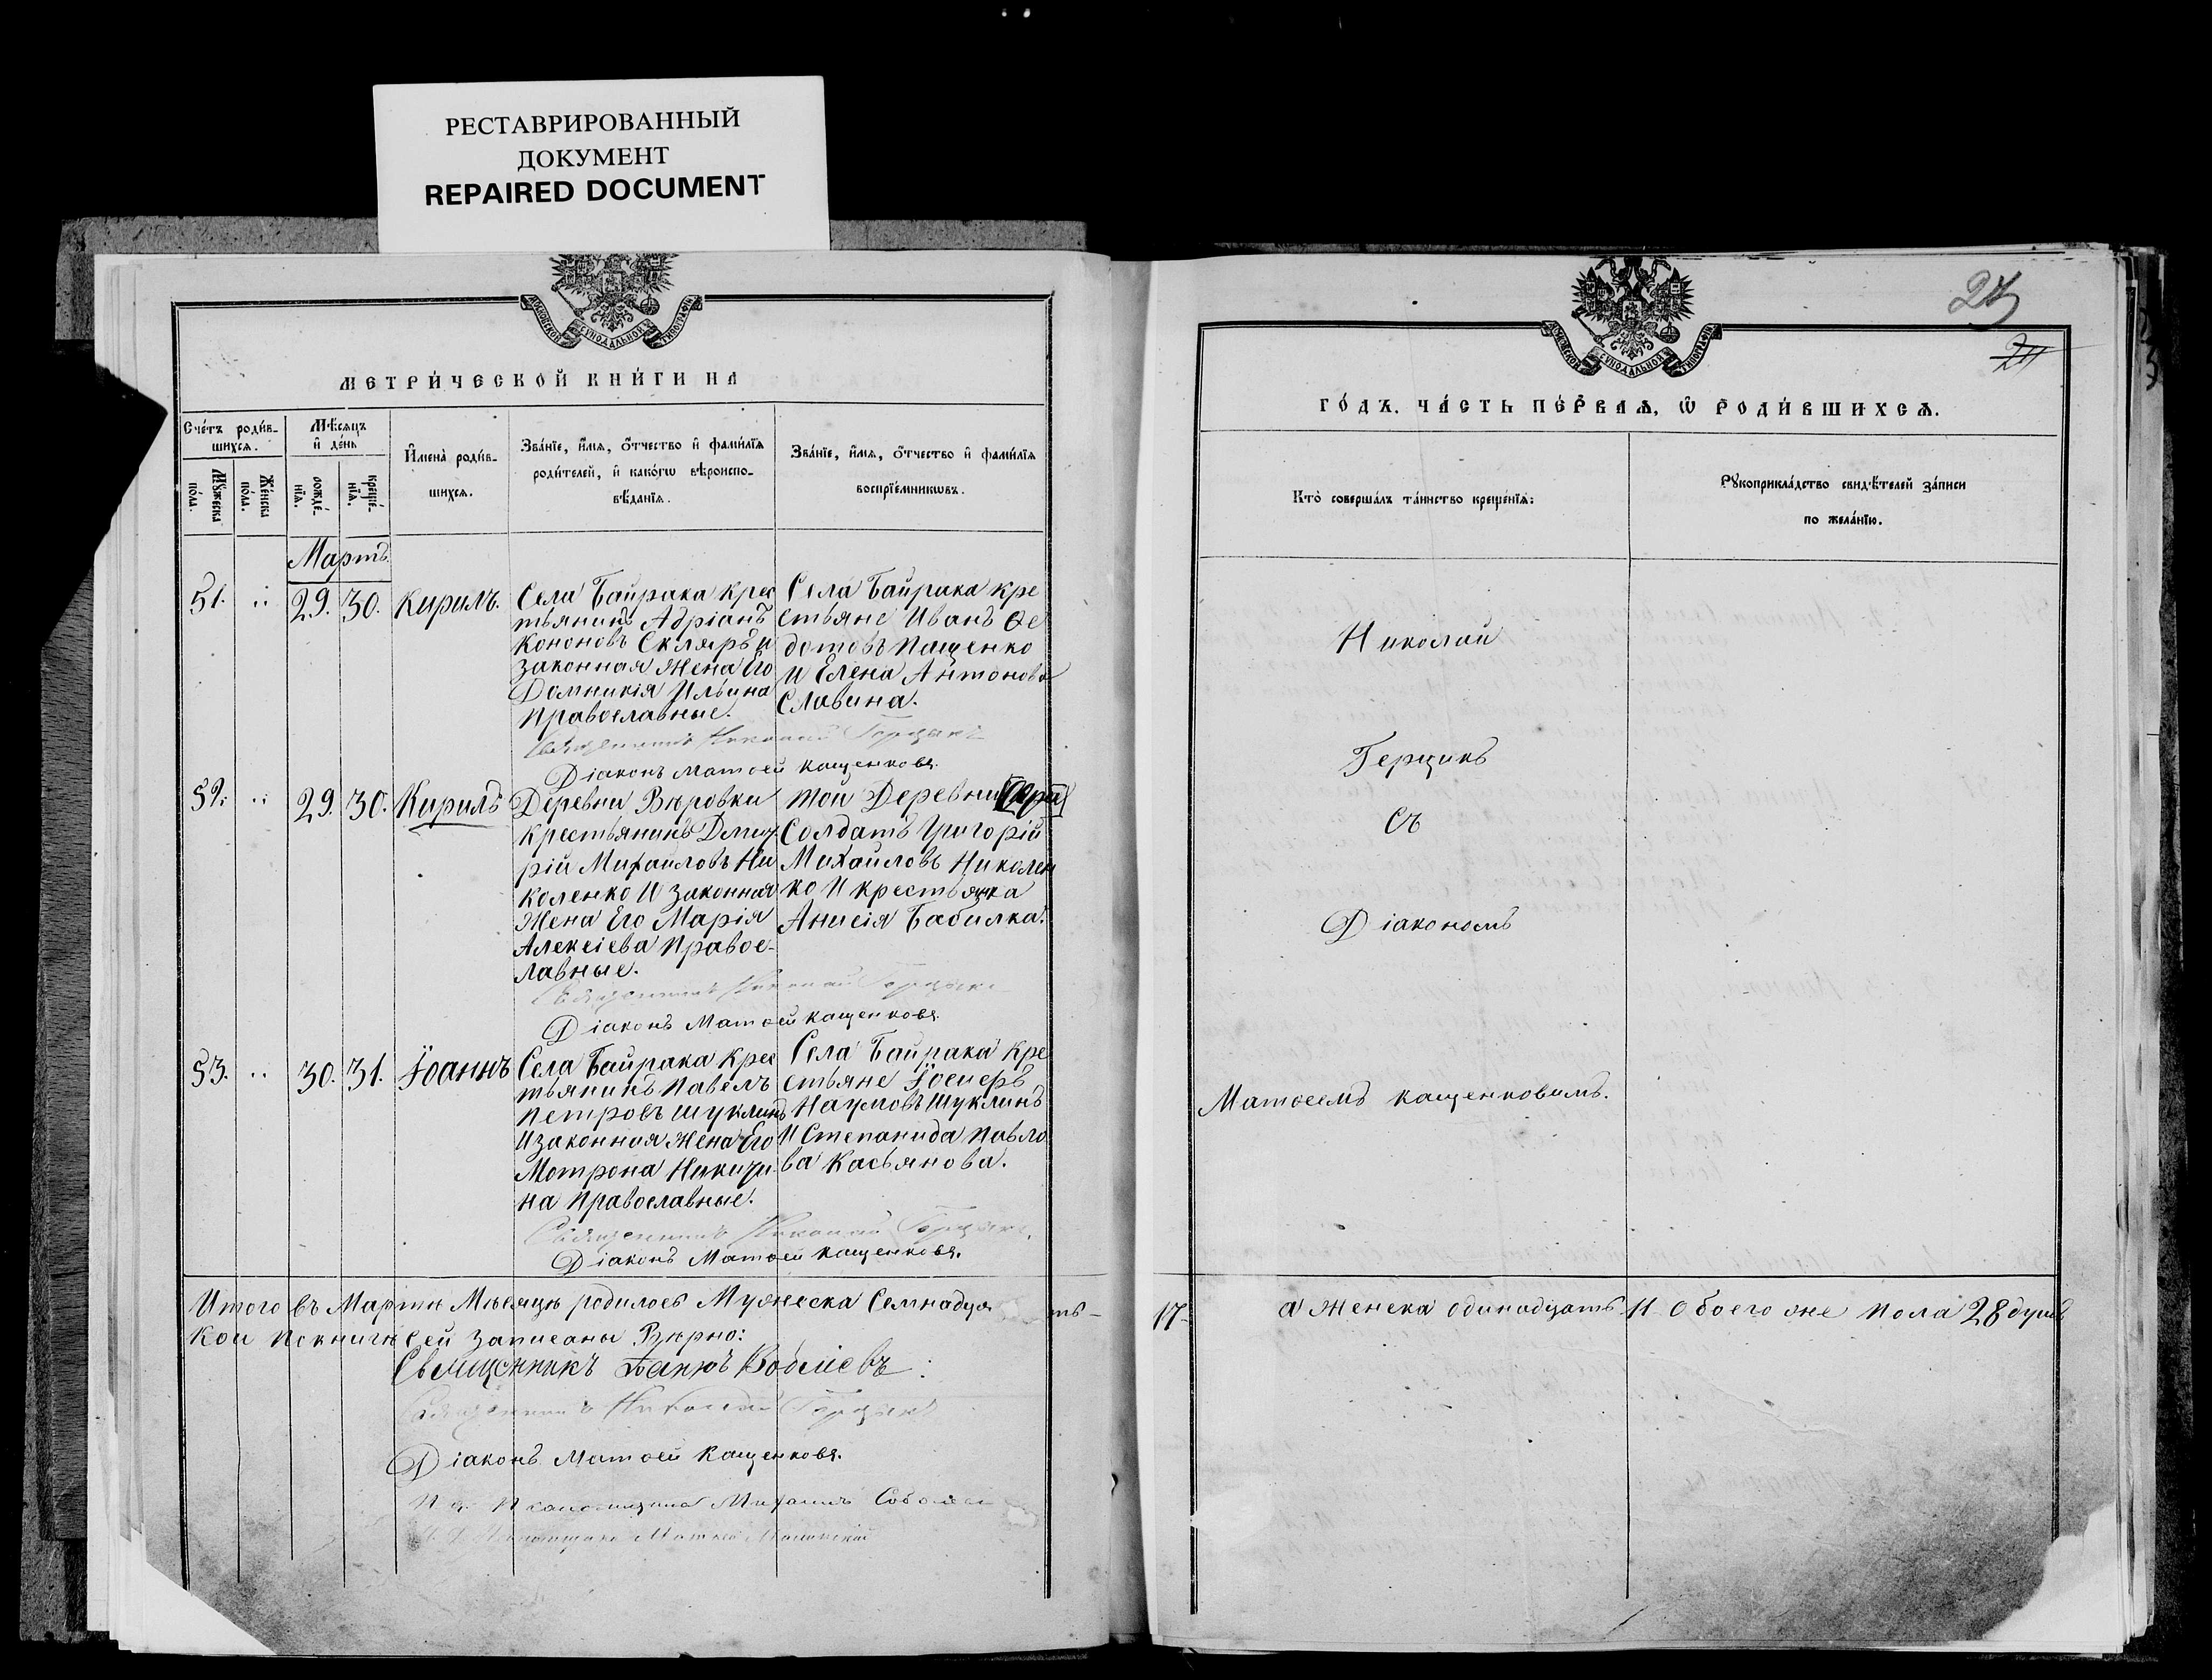 РЕСТАВРИРОВАННЫЙ
ДОКУМЕНТ
REPAIRED DOCUMENT
МОСКОВСКОЙ СУНОДАЛЬНОЙ ТИПОГРАФІИ
МЕТРИ́ЧЕСКОЙ КНИ́ГИ НА
Сче́тъ роди́в-
шихсѧ.
Мꙋ́жеска
по́ла.
Же́нска
по́ла.
Мѣ́сѧцъ
и҆ де́нь
рожде́-
нїѧ.
креще́-
нїѧ.
И҆мена̀ роди́в-
шихсѧ.
Зва́нїе, и҆́мѧ, о҆́тчество и҆ фами́лїѧ
роди́телей, и҆ како́гѡ вѣроиспо-
вѣ́данїѧ.
Зва́нїе, и҆́мѧ, о҆́тчество и҆ фами́лїѧ
воспрїе́мникѡвъ.
Мартъ
51.
29.
30.
Кирилъ.
Села Байрака крес
тьянинъ Адріанъ
Кононовъ Скляръ и
законная жена Его
Домникія Ильина
Православные.
Села Байрака кре
стьяне Иванъ Ѳе
дотовъ Пащенко
и Елена Антонова
Славина.
Священникъ Николай Герцыкъ
Діаконъ Матѳей Кащенковъ.
52.
29.
30.
Кирилъ
Деревни Вѣровки
крестьянинъ Димит
рій Михаиловъ Ни
коленко и законная
жена Его Марія
Алексіева Правос-
лавные.
той Деревни
Солдатъ Григорій
Михаиловъ Николен
ко и крестьянка
Анисія Бабилка.
Священникъ Николай Герцыкъ
Діаконъ Матѳей Кащенковъ.
53.
30.
31.
Іоаннъ
Села Байрака крес
тьянинъ Павелъ
Петровъ Шуклинъ
и законная жена Его
Мотрона Никити-
на Православные.
Села Байрака кре
стьяне Іосифъ
Наумовъ Шуклинъ
и Степанида Павло
ва Касьянова.
Священникъ Николай Герцыкъ.
Діаконъ Матѳей Кащенковъ.
Итого въ Мартѣ Мѣсяцѣ родилось Мужеска Семнадца ть-
Кои по книгѣ сей записаны Вѣрно:
Священникъ
Священникъ Николай Герцыкъ
Діаконъ Матѳей Кащенковъ.
Михаилъ
МОСКОВСКОЙ СУНОДАЛЬНОЙ ТИПОГРАФІИ
ГО́ДЪ. ЧА́СТЬ ПЕ́РВАѦ, Ѡ҆ РОДИ́ВШИХСѦ.
Кто̀ соверша́лъ та́инство креще́нїѧ:
Рꙋкоприкла́дство свидѣ́телей за́писи
по жела́нїю.
Николай
Герцикъ
съ
Діакономъ
Матѳеемъ Кащенковимъ.
17-
а Женска одинадцать 11 Обоего же пола 28 душъ